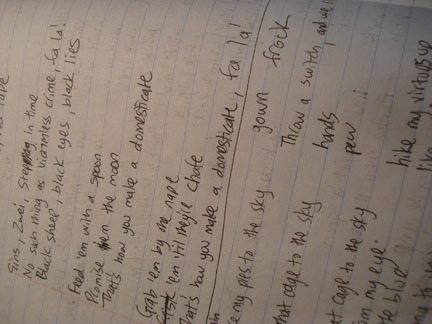 Eins, Zwei, Stepping in time
No such thing as victimless crime, fa la!
Black sheep, black eyes, black lies
Feed 'em with a spoon
Promise 'em the moon
That's how you make a domesticate
Grab 'em by the nape
'em 'til they're chafe
That's how you make a domesticate, fa la!
my pies to the sky gown frock
that cage to the sky Throw a switch, and we
hands
pew
cage to the sky
in my eye.
blue
hike my virtous up
like